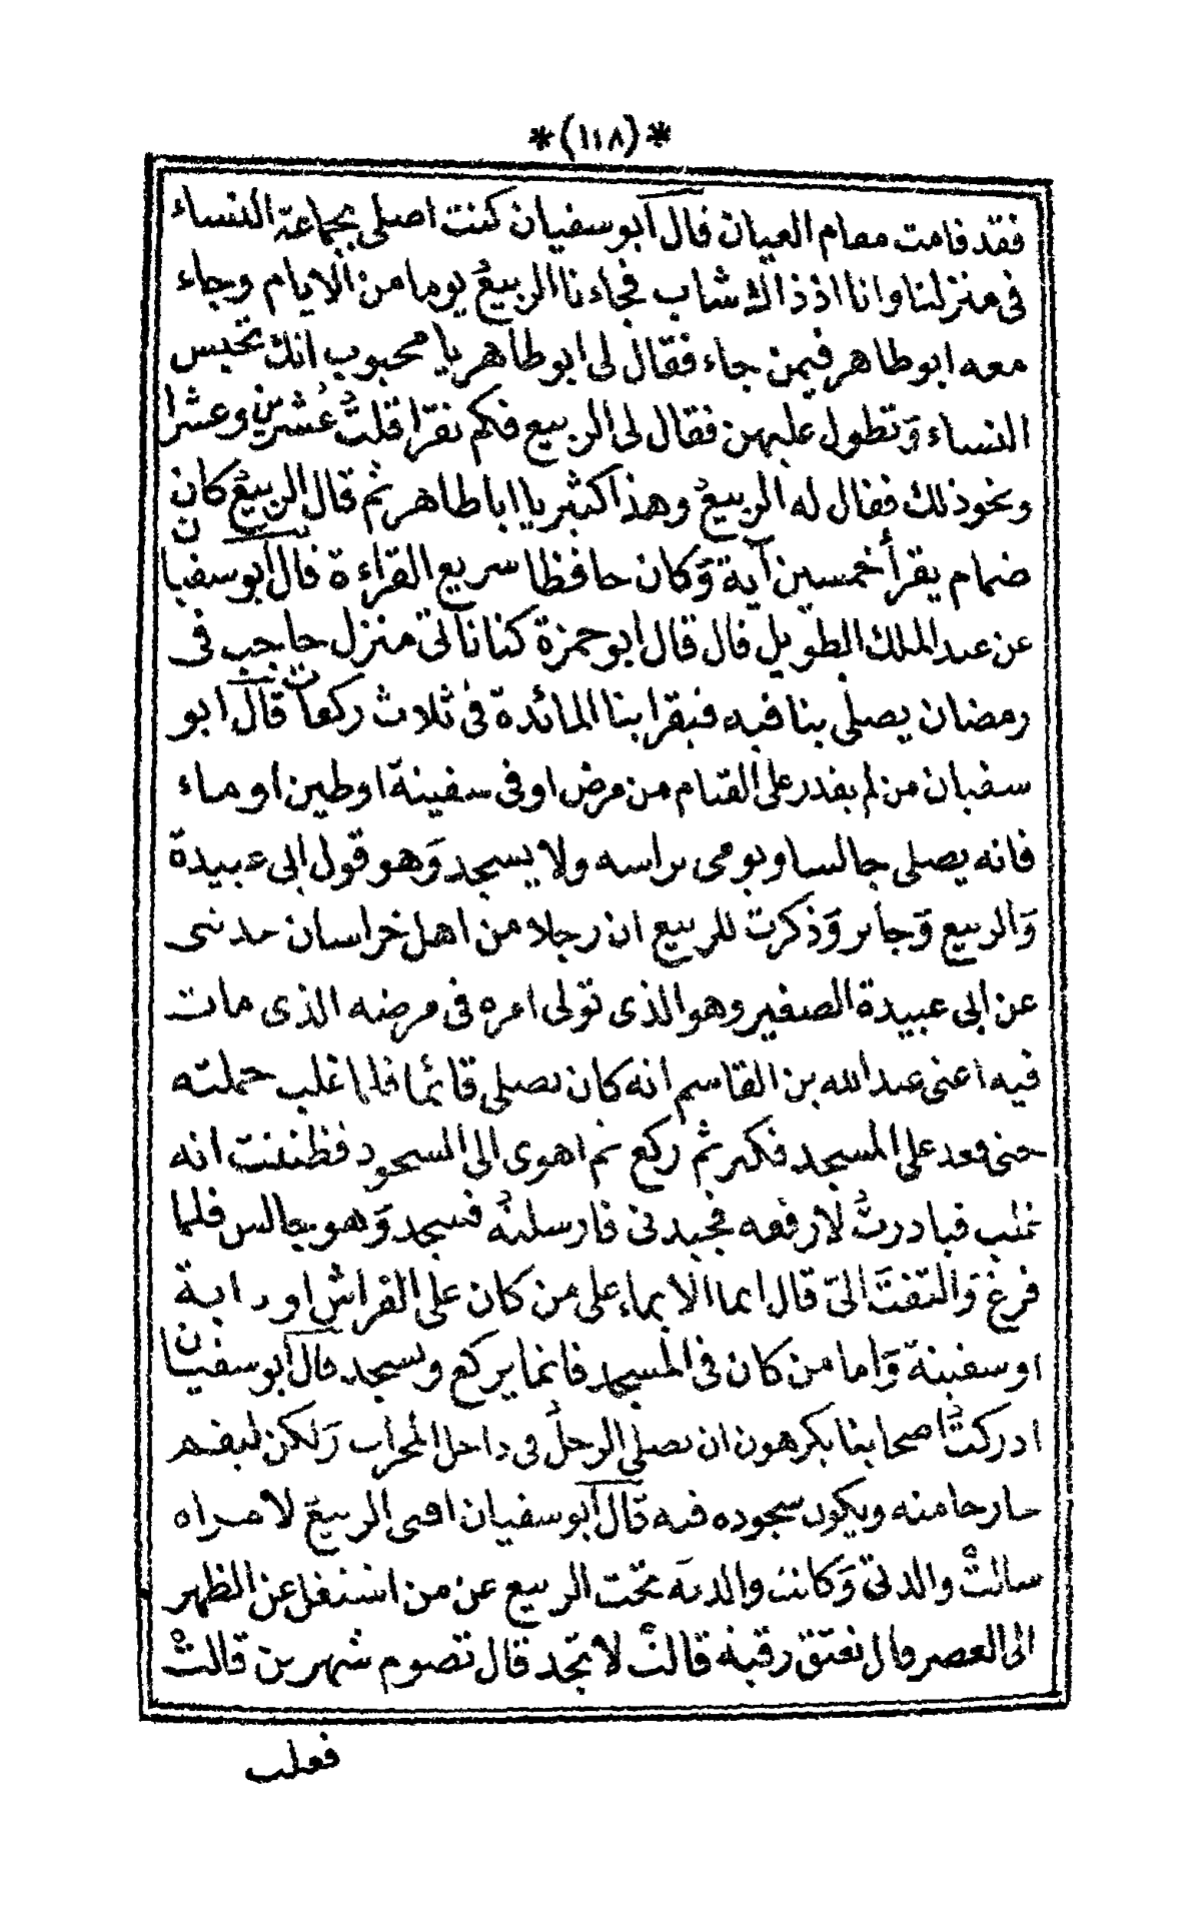 *(١١٨)*
فقد قامت مقام العيان قال ابو سفيان كنت اصلى بجماعة النساء
فى منزلنا وانا اذ ذاك شاب فجاءنا الربيعُ يوما من الايام وجاء
معه ابو طاهر فيمن جاء فقال لى ابو طاهر يا محبوب انك تحبس
النساء وَتطول عليهن فقال لى الربيع فكم تقرا قلتُ عُشرين وعشرا
ونحو ذلك فقال له الربيعُ وهذا كثير يا ابا طاهر ثم قال الربيعُ كان
ضمام يقرأ خمسين آية وَكان حافظا سريع القراءة قال ابو سفيان
عن عبد الملك الطويل قال قال ابو حمزة كنا نأتى منزل حاجب فى
رمضان يصلى بنا فيه فيقرا بنا المائدة فى ثلاث ركعات قال ابو
سفيان من لم يقدر على القيام من مرض او فى سفينة او طين او ماء
فانه يصلى جالسا ويومى براسه ولا يسجد وَهو قول ابى عبيدة
وَالربيع وَجابر وَذكرت للربيع ان رجلا من اهل خراسان حدثنى
عن ابى عبيدة الصغير وهو الذى تولى امره فى مرضه الذى مات
فيه اعنى عبد الله بن القاسم انه كان يصلى قائما فلما غلب حملته
حتى قعد على المسجد فكبر ثم ركع ثم اهوى الى السجود فظننت انه
غلب فبادرتُ لارفعه فجبدنى فارسلتُه فسجد وَهو جالس فلما
فرغ وَالتفتَ الىّ قال انما الايماء على من كان على الفراش او دابة
او سفينة وَاما من كان فى المسجد فانما يركع ويسجد قال ابو سفيان
ادركتُ اصحابنا يكرهون ان يصلى الرجلُ فى داخل المحراب وَلكن ليقم
خارجا منه ويكون سجوده فيه قال ابو سفيان افتى الربيعُ لامراة
سالتْ والدتى وَكانت والدته تحت الربيع عن من اشتغل عن الظهر
الى العصر قال تعتق رقبة قالتْ لا تجد قال تصوم شهرين قالتْ
فعلب